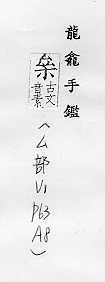 龍龕手鑑
古文
音素
(厶部 V1 P63 A8)